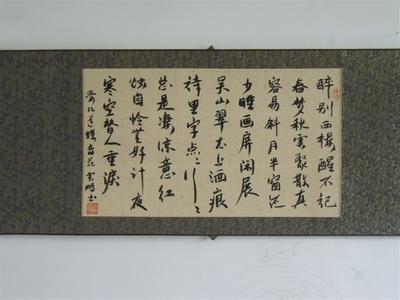 醉别西楼醒不記
春梦秋雲聚散真
容易斜月半窗还
少睡画屏闲展
吴山翠衣上酒痕
詩里字点〻行〻
总是凄凉意红
烛自怜無好計夜
寒空替人垂淚
晏几道蝶恋花 书